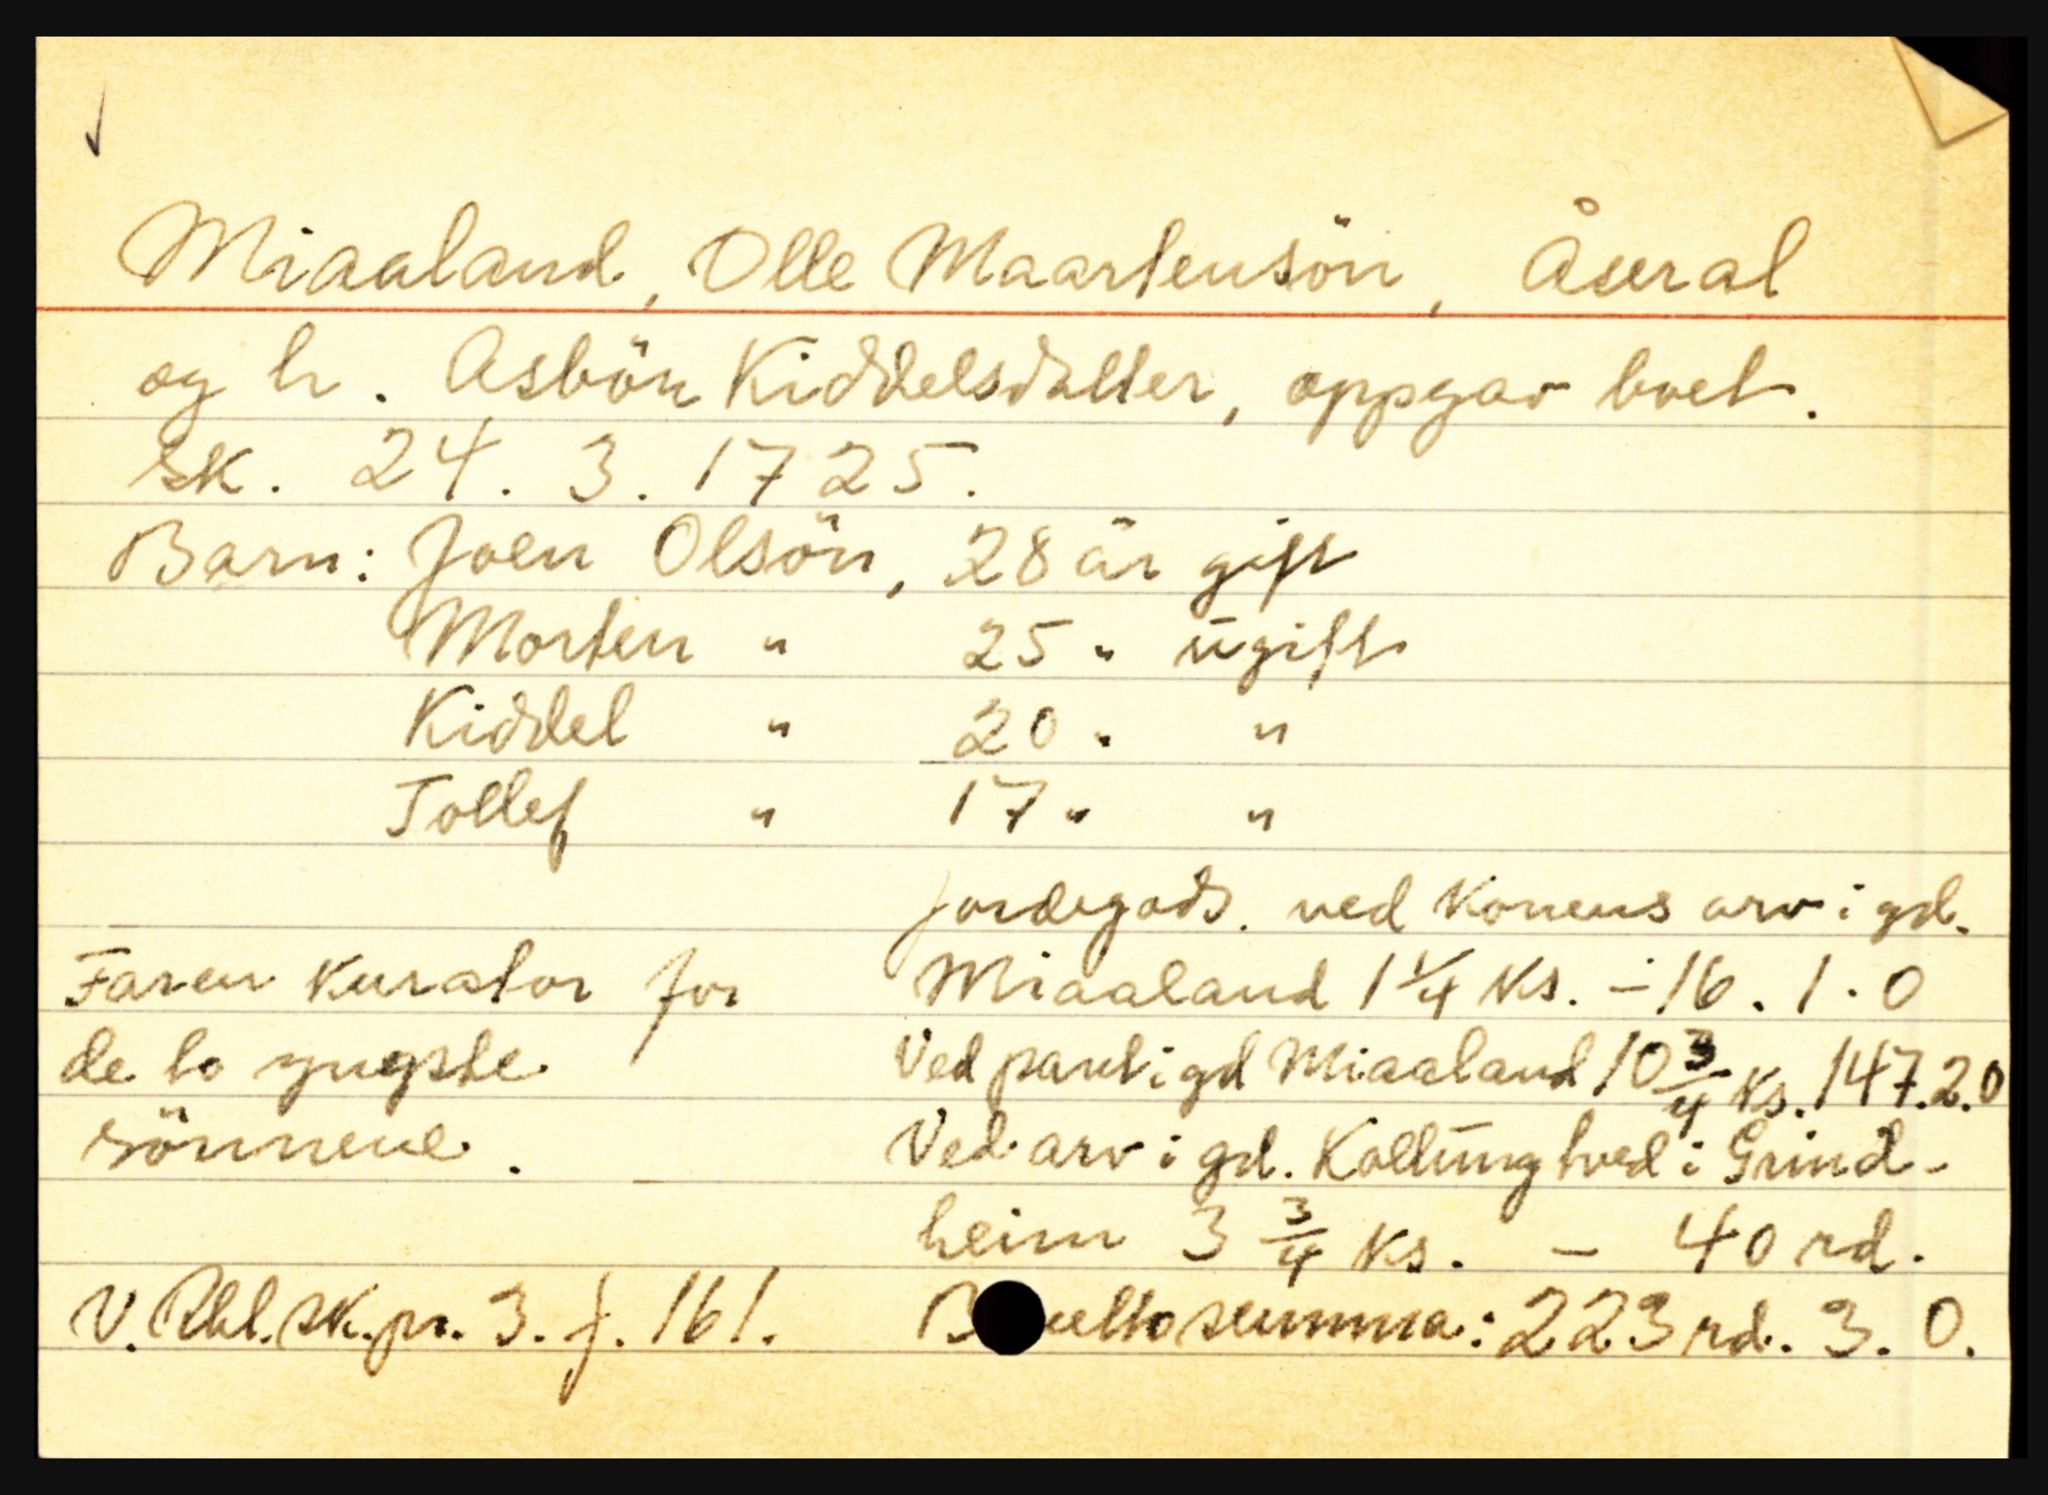 Miaaland, Olle Maartensön, Åseral
og h. Asbön Kiddelsdatter, oppgav boet.
sk. 24. 3. 1725.
Barn: Joen Olsön, 28 år gift
Morten " 25 " ugift
Kiddel " 20 " "
Tollef " 17 " "
Faren kurator for
de to yngste
sönnene.
V. Rbl. sk. pr. 3. f. 161.
Jordegods. ved konens arv i gd.
Miaaland 1 1/4 ks. - 16. 1. 0
Ved pant i gd Miaaland 10 3/4 ks. 147.2.0
Ved arv i gd. Kollungtved i Grind-
heim 3 3/4 ks. - 40 rd.
Bruttosumma: 223 rd. 3. 0.